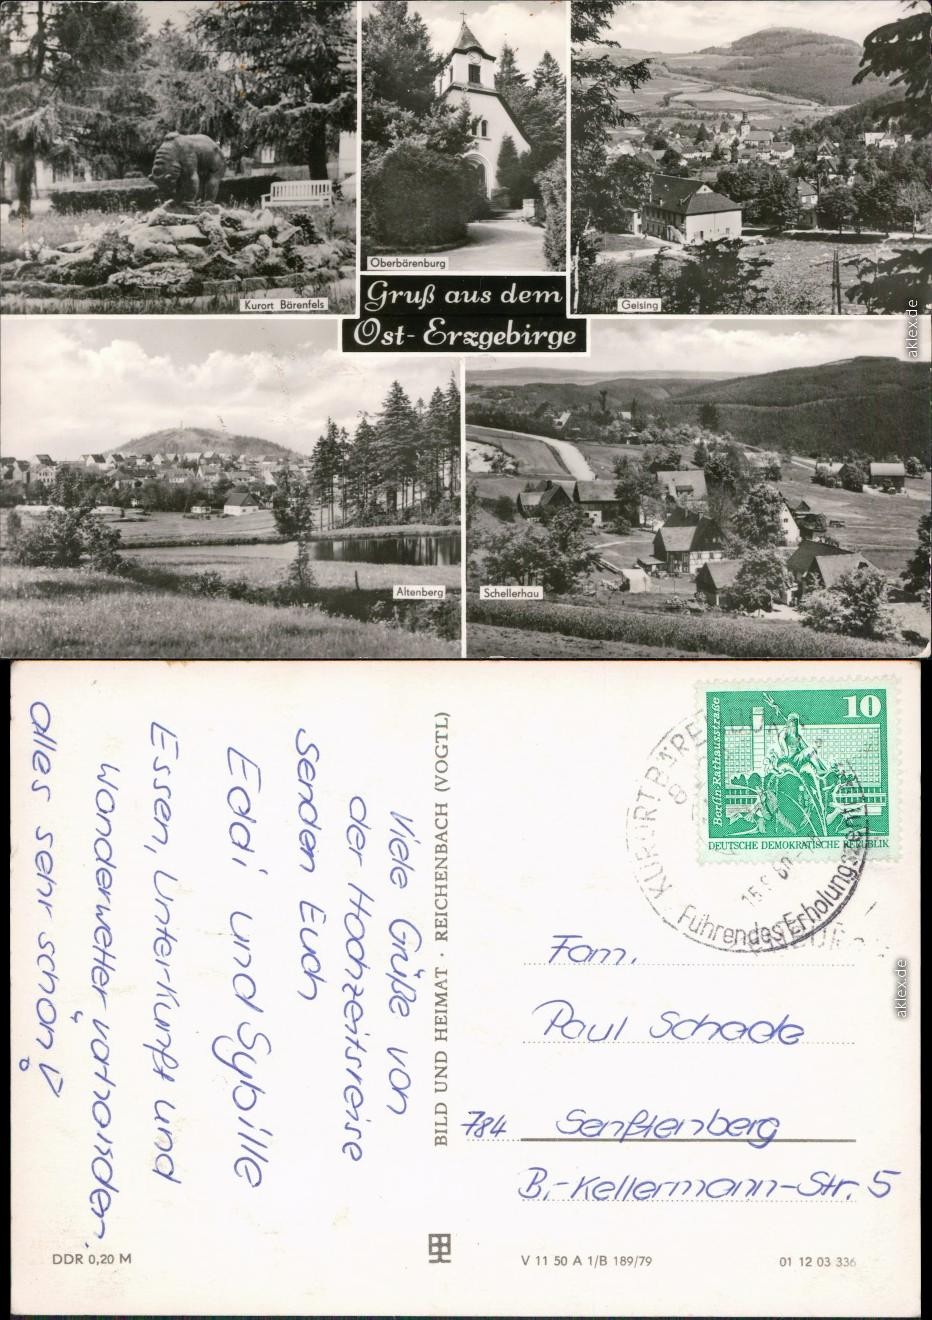 Kurort Bärenfels
Oberbärenburg
Geising
Gruß aus dem
Ost-Erzgebirge
Altenberg
Schellerhau
aklex.de
Viele Grüße von
der Hochzeitsreise
senden Euch
Edai und Sybille
Essen, Unterkunft und
Wanderwetter vorhanden.
alles sehr schön!
BILD UND HEIMAT · REICHENBACH (VOGTL)
10
Berlin-Rathausstraße
DEUTSCHE DEMOKRATISCHE REPUBLIK
KURORT BÄREN
8
15. 80
Führendes Erholungszentrum
Fam.
Paul Schade
784 Senftenberg
B.-Kellermann-Str. 5
DDR 0,20 M
V 11 50 A 1/B 189/79
01 12 03 336
aklex.de